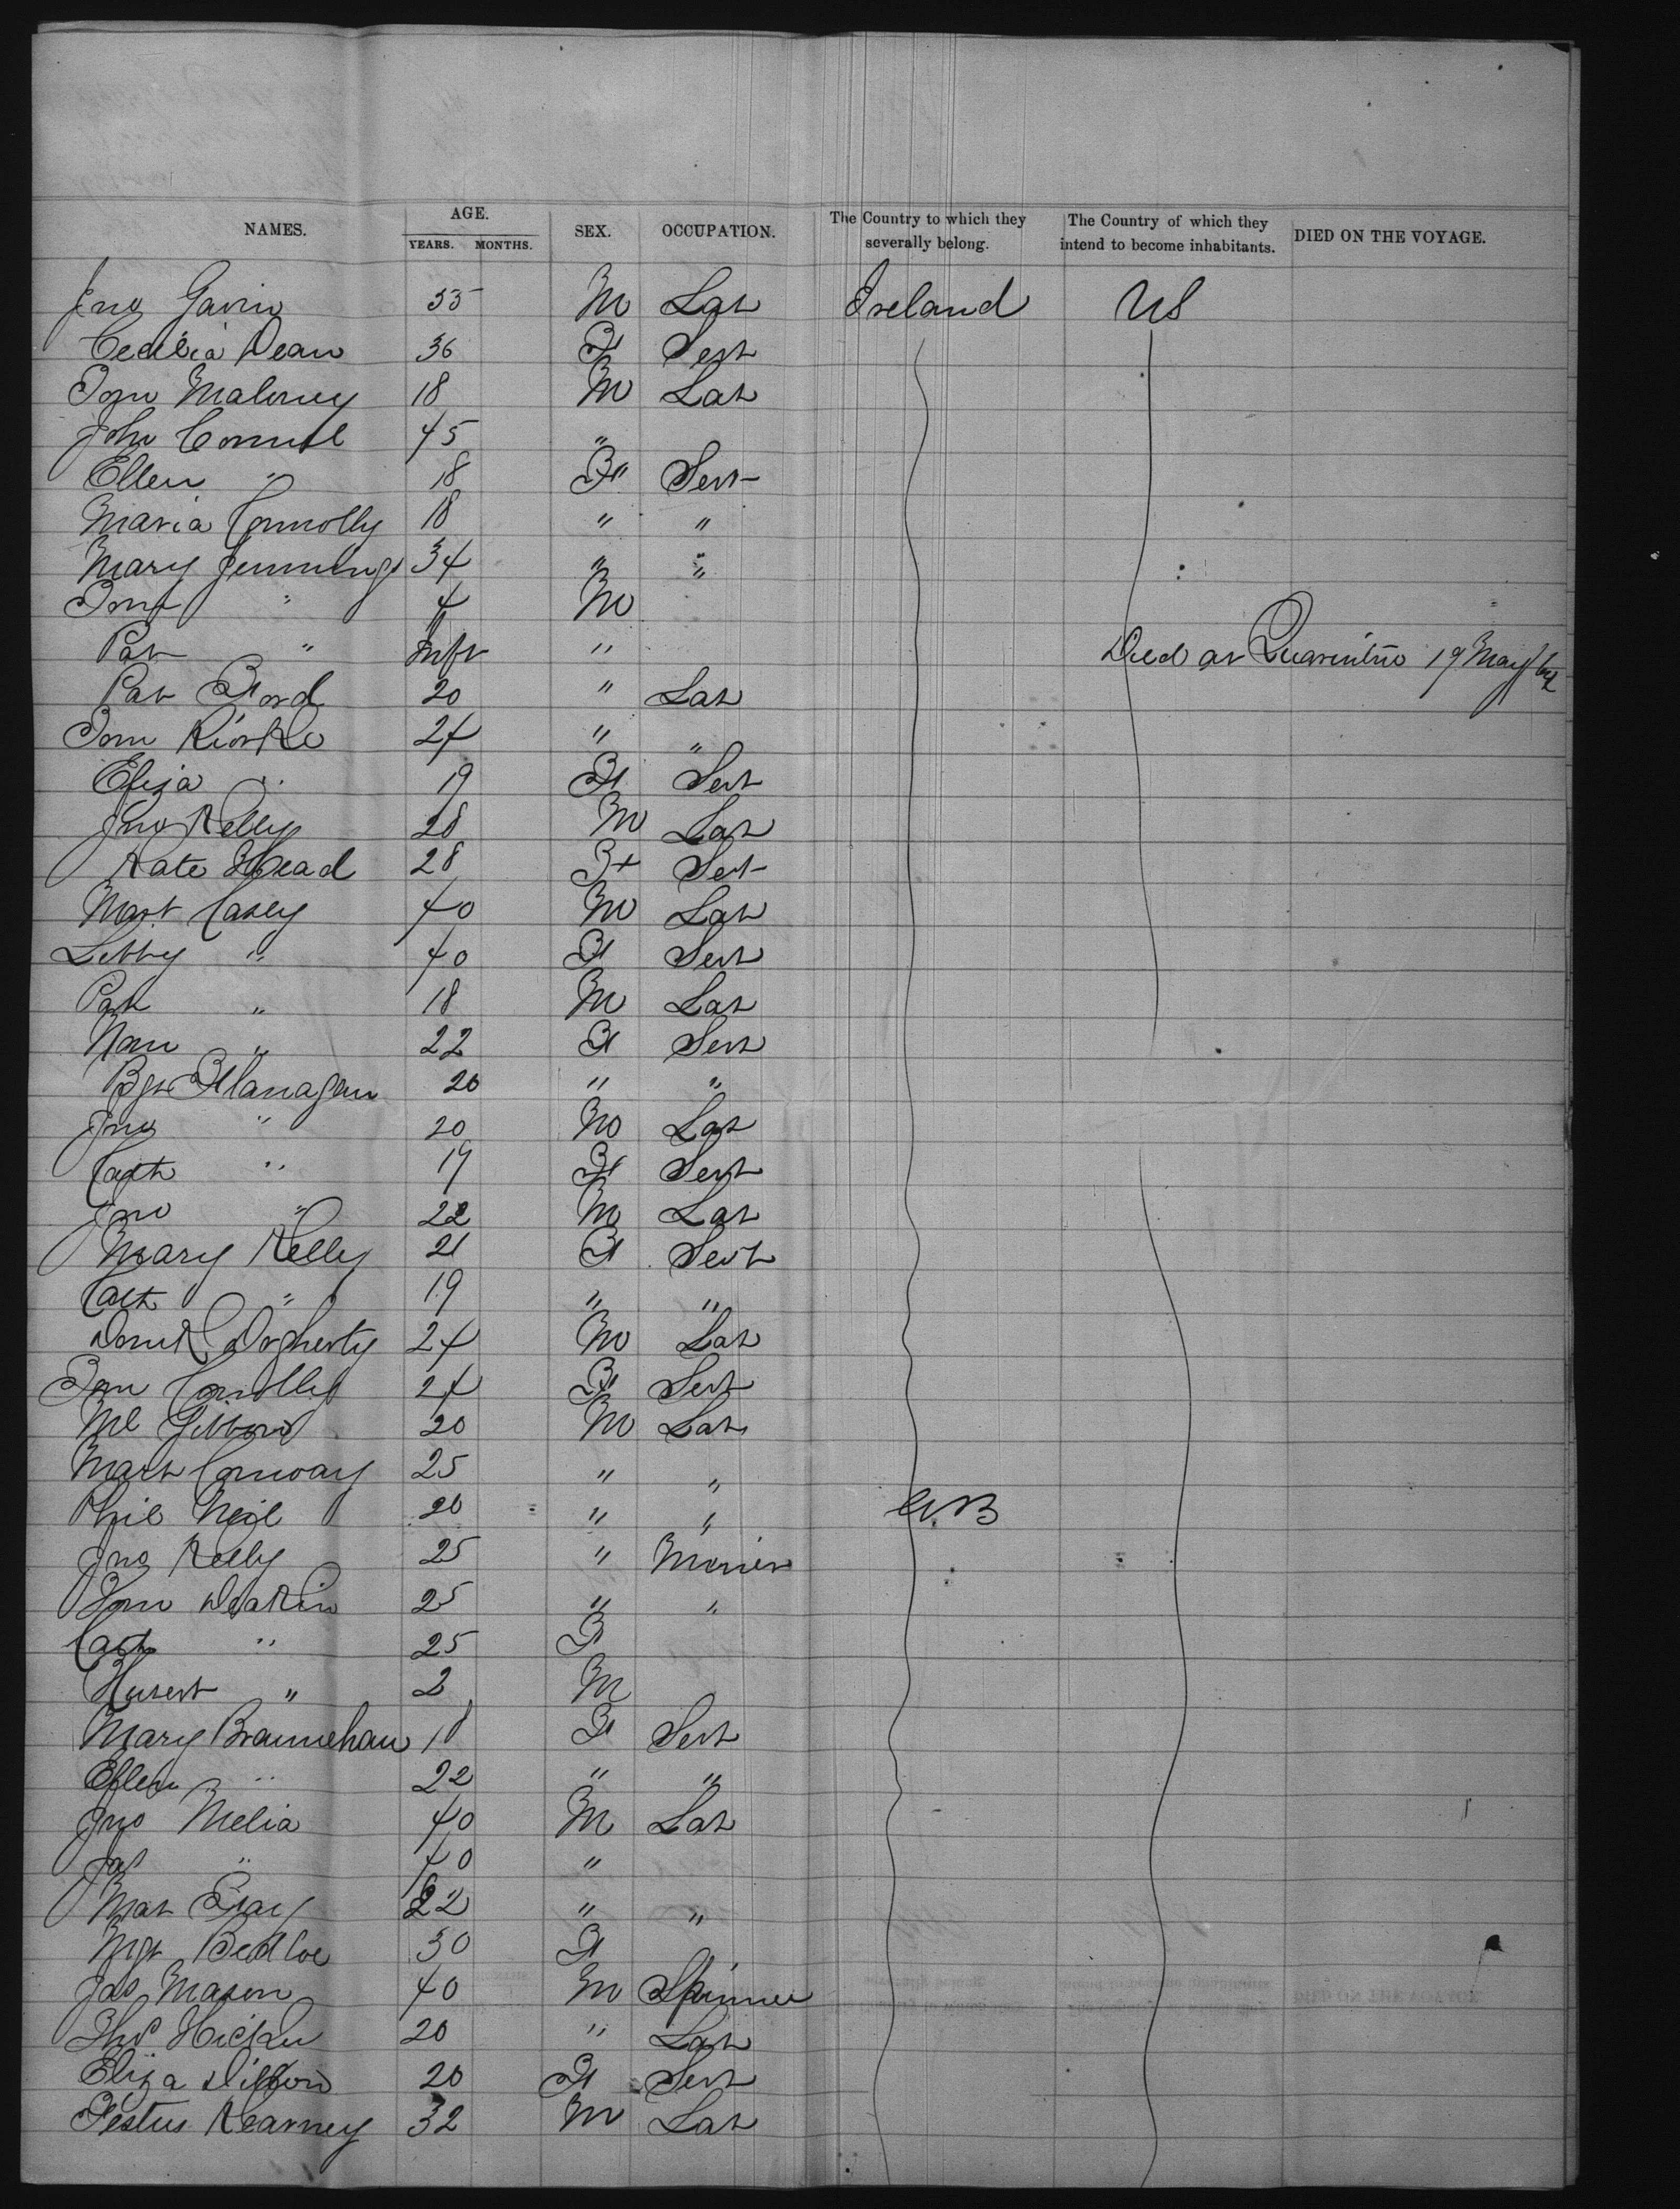 NAMES. AGE. YEARS. MONTHS. SEX. OCCUPATION. The Country to which they severally belong. The Country of which they intend to become inhabitants. DIED ON THE VOYAGE.
Jno Gavin 35 M Lab Ireland US
Cecilia Dean 36 F Sert
Tom Maloney 18 M Lab
John Connel 45 "
Ellen " 18 F" Sert
Maria Connolly 18 " "
Mary Jennings 34 " "
Tom " 4 M
Pat " Inft " Died at Quarintine 19 May/64
Pat Ford 20 " Lab
Tom 24 " "
Eliza " 19 F Sert
Jno Kelly 28 M Lab
Kate Head 28 F Sert
Mart Casey 40 M Lab
Libby " 40 F Sert
Pat " 18 M Lab
Nan " 22 F Sert
Bgt Flanagan 20 " "
Jno " 20 M Lab
Cath " 19 F Sert
Jno " 22 M Lab
Mary Kelly 21 F Sert
Cath " 19 " "
Domk Dogherty 24 M Lab
Connolly 24 F Sert
Ml Gibbons 20 M Lab
Mark Conway 25 " "
Phil Neil 20 " " GB
Jno Kelly 25 " Miner
Tom Deakin 25 " "
Cath " 25 F
Hubert " 2 M
Mary Brannehan 18 F Sert
Ellen " 22 " "
Jno Melia 40 M Lab
Jas " 40 "
Mat Gray 22 " "
Mgt Bedloe 30 F
Jas Mason 40 M Spinner
Thos 20 " Lab
Eliza Dillon 20 F Sert
Festus Kearney 32 M Lab